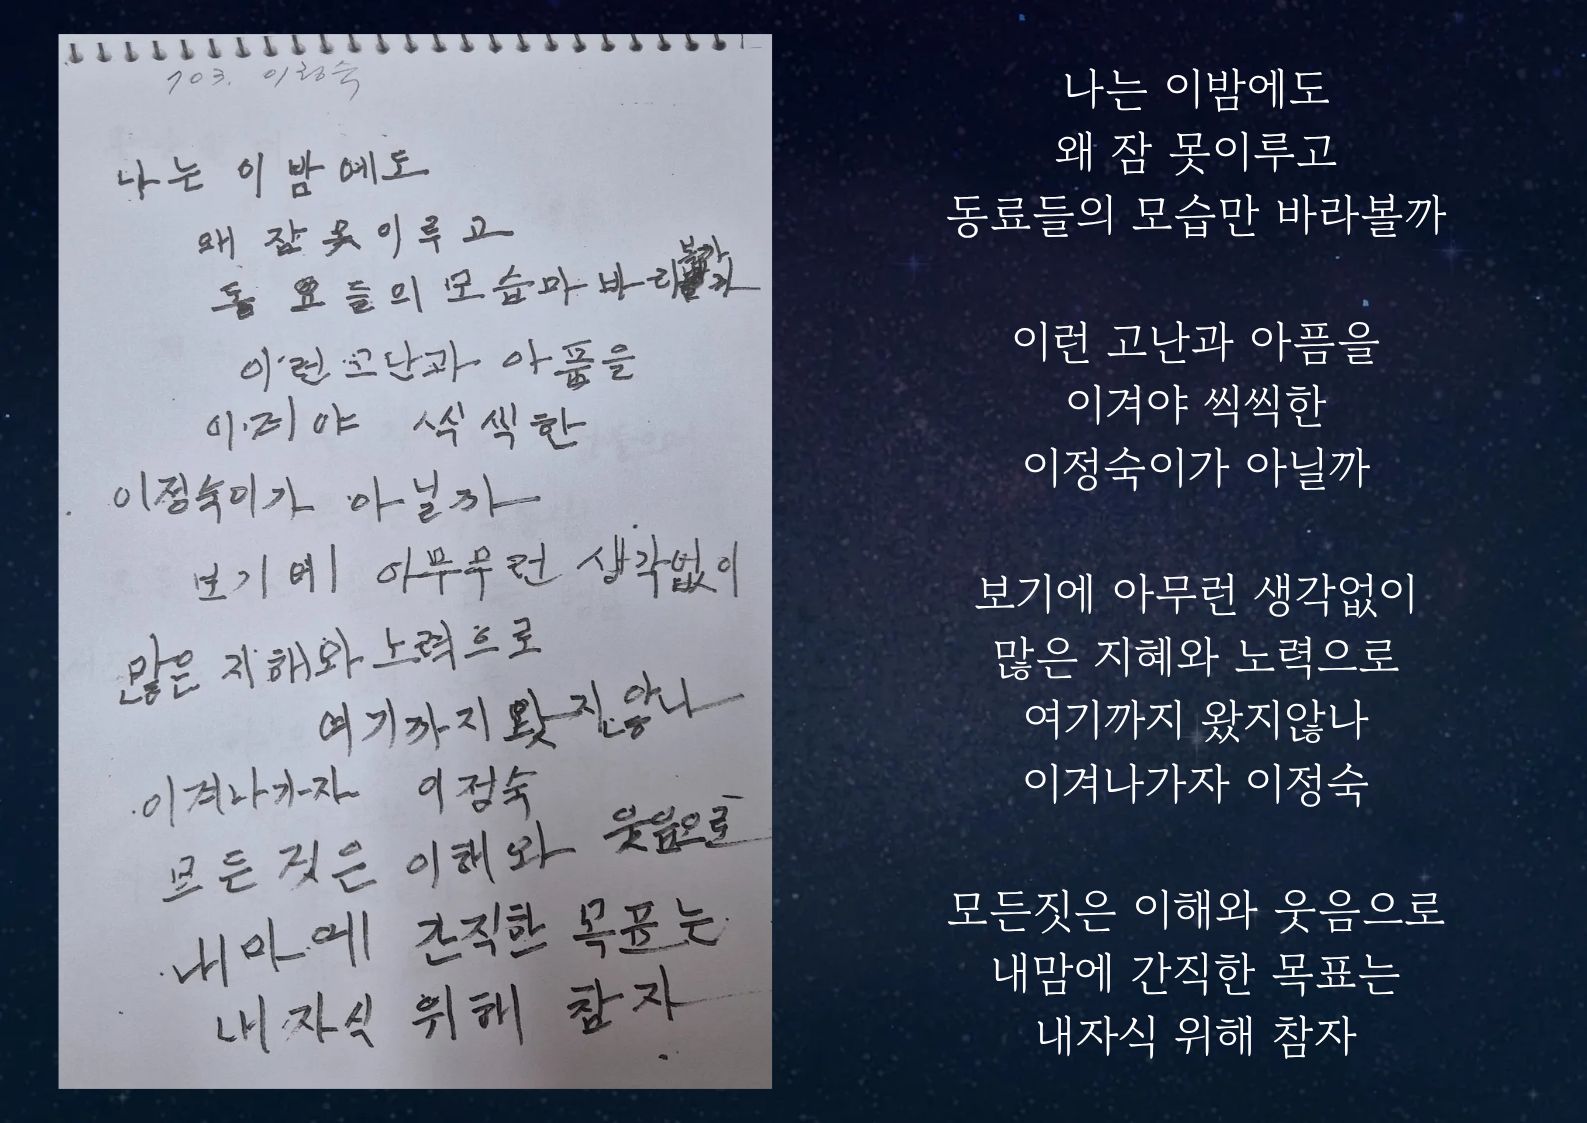 703. 이정숙
나는 이 밤에도
왜 잠 못이루고
동 료들의 모습마 바라볼까
이런 고난과 아픔을
이겨야 식식한
이정숙이가 아닐까
보기에 아무무런 생각없이
많은 지해와 노력으로
여기까지 왔지않나
이겨나가자 이정숙
모든 짓은 이해와 웃음으로
내마에 간직한 목표는
내 자식 위해 참자
나는 이밤에도
왜 잠 못이루고
동료들의 모습만 바라볼까
이런 고난과 아픔을
이겨야 씩씩한
이정숙이가 아닐까
보기에 아무런 생각없이
많은 지혜와 노력으로
여기까지 왔지않나
이겨나가자 이정숙
모든짓은 이해와 웃음으로
내맘에 간직한 목표는
내자식 위해 참자